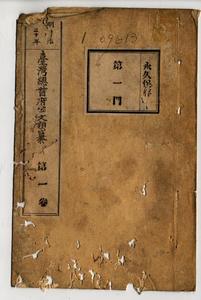 1 09613
永久保存
第一門
臺灣總督府公文類纂 第一卷